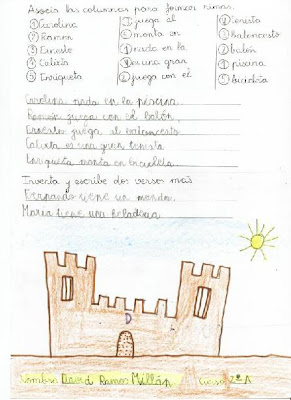 Asocia las columnas para formar rimas.
① Carolina ① juega al ① tenista
② Ramón ② monta en ② baloncesto
③ Ernesto ③ nada en la ③ balón
④ Calixta ④ es una gran ④ piscina
⑤ Enriqueta ⑤ juega con el ⑤ bicicleta
Carolina nada en la piscina.
Ramón juega con el balón.
Ernesto juega al baloncesto
Calixta es una gran tenista
Enriqueta monta en bicicleta
Inventa y escribe dos versos más
Fernando tiene un mando.
María tiene una
D
Nombre David Ramos Millán Curso 2º A